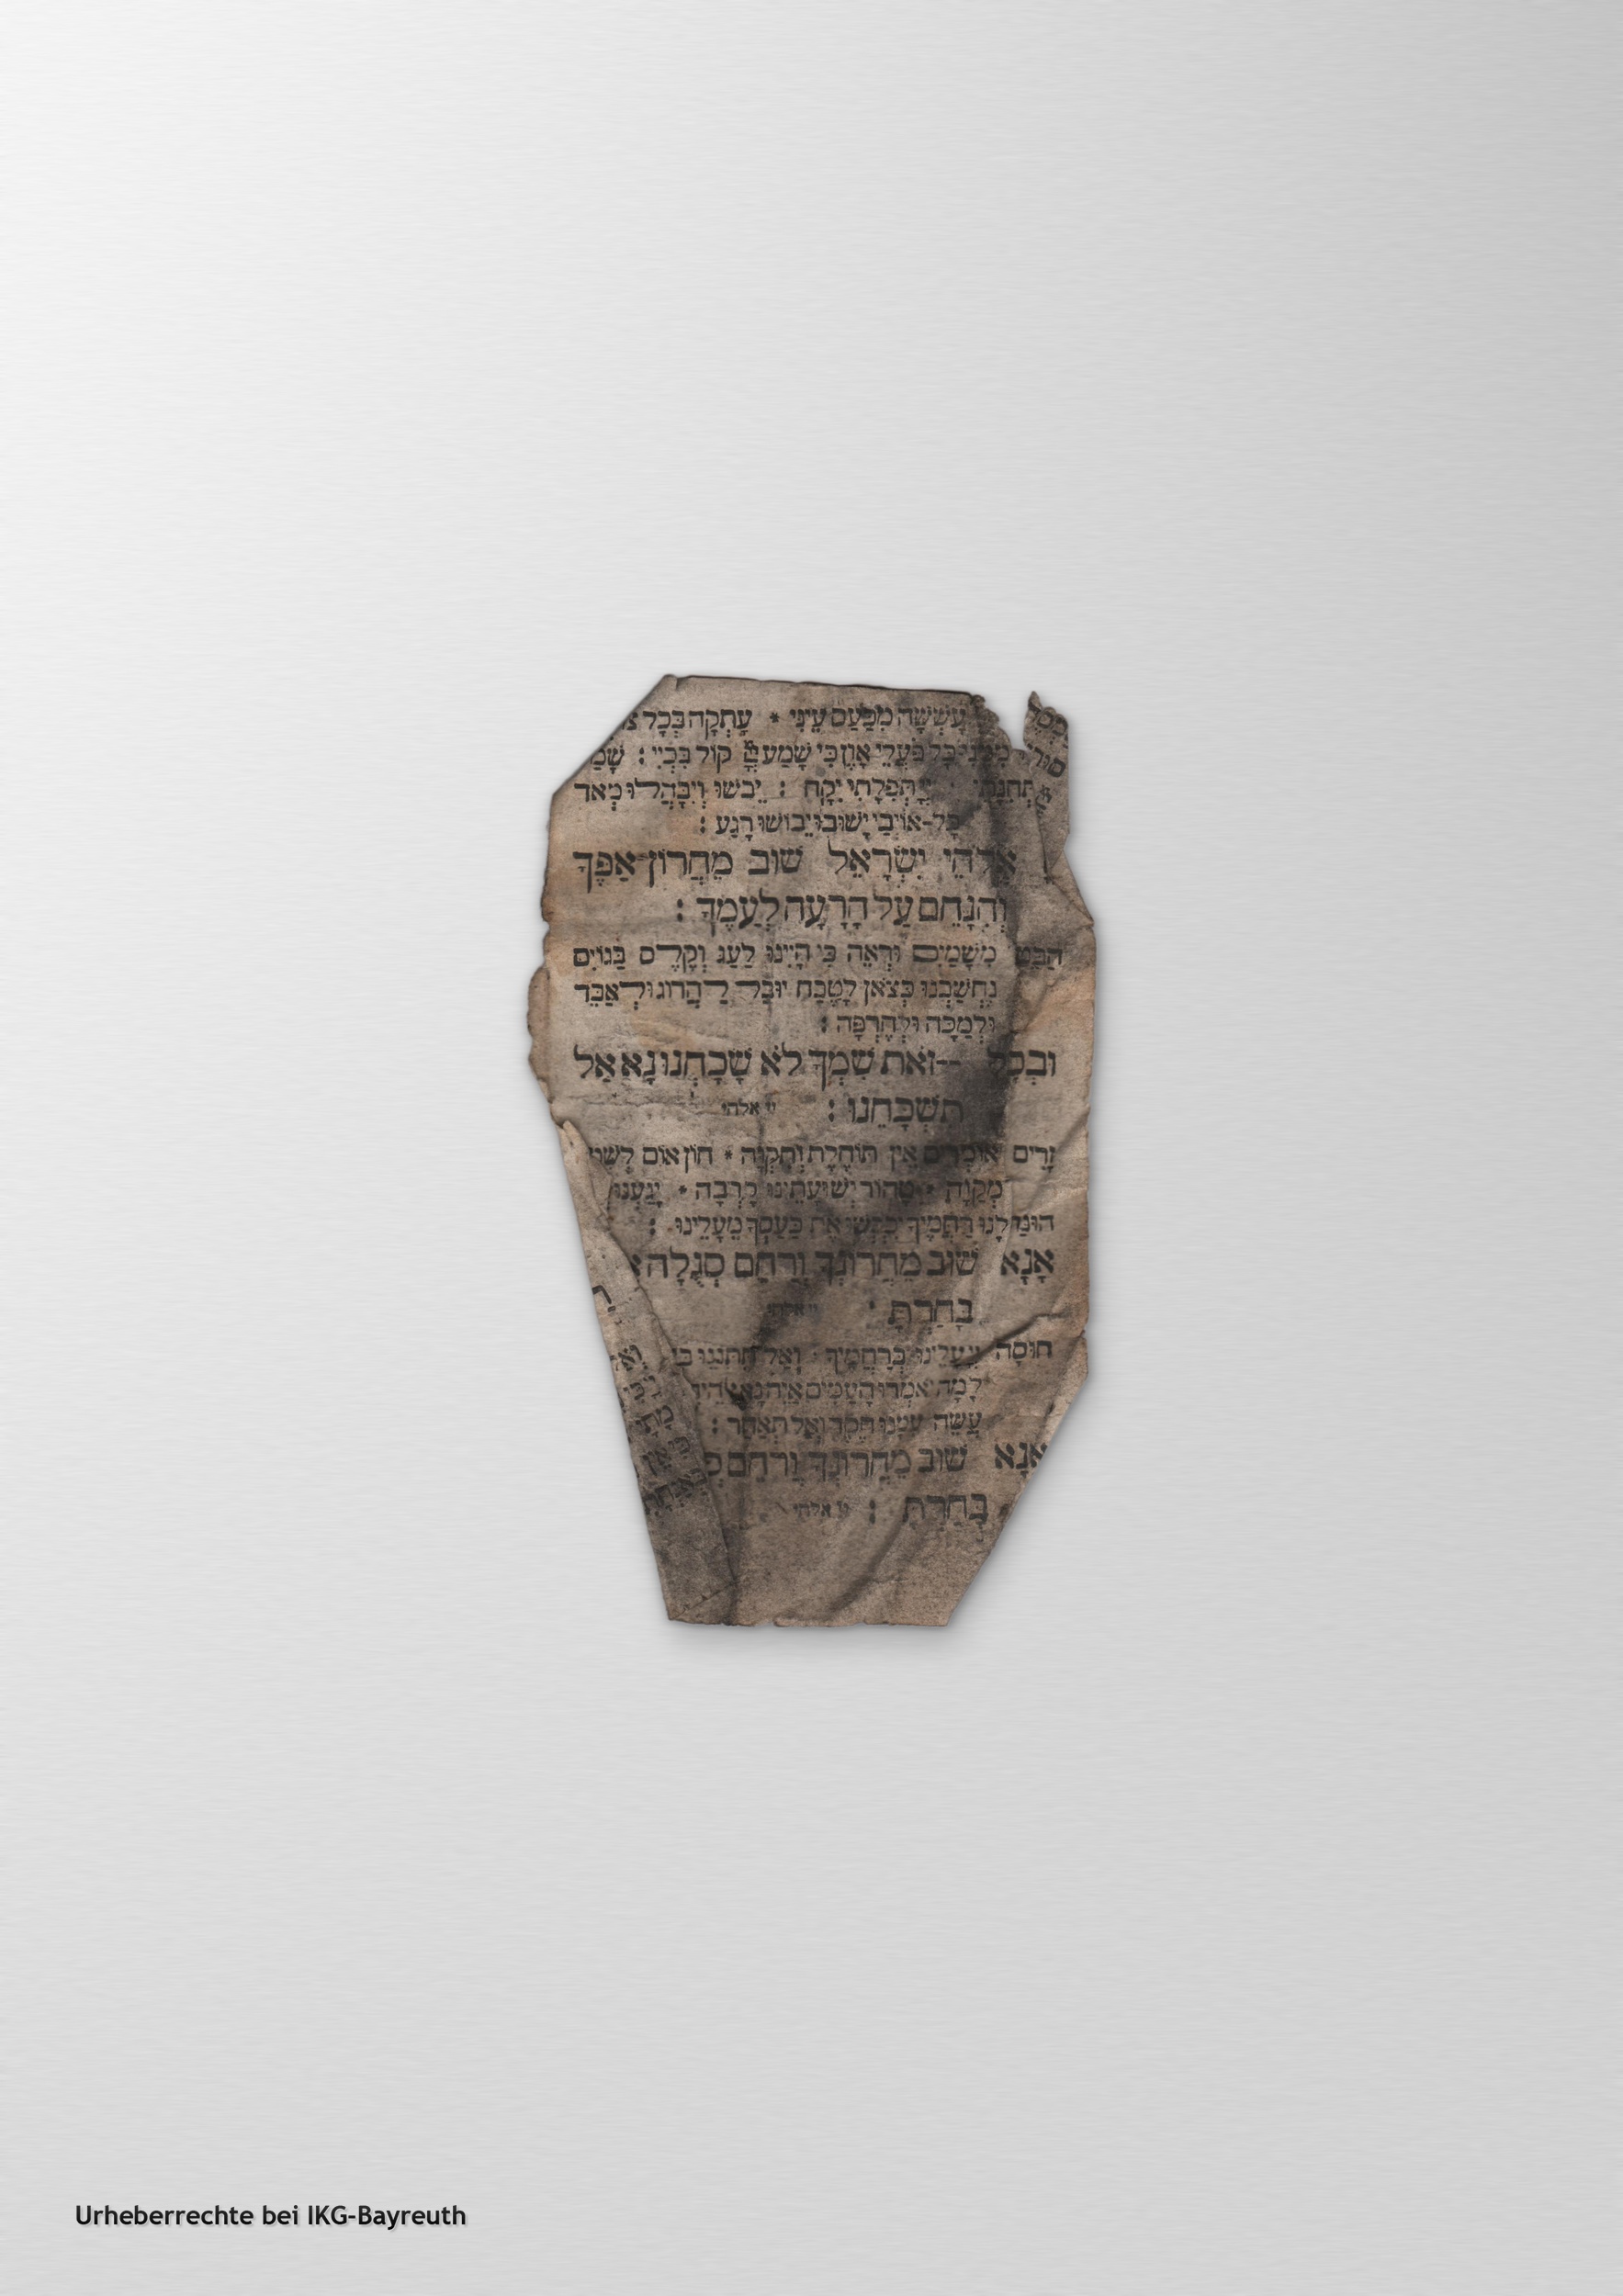 עָשְׁשָׁה מִכַּעַס עֵינִי * עָתְקָה בְּכָל
כָּל פֹּעֲלֵי אָוֶן כִּי שָׁמַע יְיָ קוֹל בִּכְיִי : שָׁמַ
תְּחִנָּתִי יְיָ תְּפִלָּתִי יִקָּח : יֵבשׁוּ וְיִבָּהֲלוּ מְאֹד
כָּל-אוֹיְבָי יָשׁוּבוּ יֵבוֹשׁוּ רָגַע :
אֱלֹהֵי יִשְׂרָאֵל שׁוּב מֵחֲרוֹן אַפֶּךָ
וְהִנָּחֵם עַל הָרָעָה לְעַמֶּךָ :
הַבֵּט מִשָּׁמַיִם וּרְאֵה כִּי הָיִינוּ לַעַג וָקֶלֶס בַּגּוֹיִם
נֶחְשַׁבְנוּ כְּצֹאן לָטֶבַח יוּבָל לַהֲרוֹג וּלְאַבֵּד
וּלְמַכָּה וּלְחֶרְפָּה :
וּבְכָל --זֹאת שִׁמְךָ לֹא שָׁכָחְנוּ נָא אַל
תִּשְׁכָּחֵנוּ : יי אלהי
זָרִים אוֹמְרִים אֵין תּוֹחֶלֶת וְתִקְוָה * חוֹן אוֹם לְשִׁמְ
מְקַוָּה * טָהוֹר יְשׁוּעָתֵינוּ קָרְבָה * יָגַעְנוּ
הוּנַח לָנוּ רַחֲמֶיךָ יִכְבְּשׁוּ אֶת כַּעַסְךָ מֵעָלֵינוּ :
אָנָּא שׁוּב מֵחֲרוֹנְךָ וְרַחֵם סְגֻלָּה א
בָּחָרְתָּ : יי אלהי
חוּסָה יְיָ עָלֵינוּ בְּרַחֲמֶיךָ וְאַל תִּתְּנֵנוּ בִּ
לָמָּה יֹאמְרוּ הָעַמִּים אַיֵּה נָא אֱלֹהֵי
עֲשֵׂה עִמָּנוּ חֶסֶד וְאַל תְּאַחַר :
אָנָּא שׁוּב מֵחֲרוֹנְךָ וְרַחֵם
בָּחָרְתָּ : יי אלהי
Urheberrechte bei IKG-Bayreuth